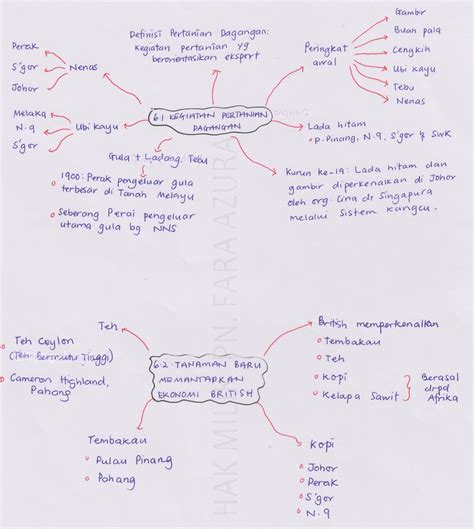 Definisi Pertanian Dagangan:
kegiatan pertanian yg
berorientasikan eksport
Peringkat
awal
Gambir
Buah pala
Cengkih
Ubi kayu
Tebu
Nenas
Perak
S'gor
Johor
Nenas
6.1 KEGIATAN PERTANIAN
DAGANGAN
Melaka
N.9
S'gor
Ubi kayu
Lada hitam
P. Pinang, N.9, S'gor & Swk
Gula + Ladang Tebu
1900: Perak pengeluar gula
terbesar di Tanah Melayu
Seberang Perai pengeluar
utama gula bg NNS
Kurun ke-19: Lada hitam dan
gambir diperkenalkan di Johor
oleh org. Cina dr Singapura
melalui Sistem Kangcu.
HAK MILIK PN. FARA AZURA
Teh
Teh Ceylon
(Teh Bermutu Tinggi)
Cameron Highland,
Pahang
British memperkenalkan
Tembakau
Teh
Kopi
Kelapa Sawit
Berasal
drpd
Afrika
6.2 TANAMAN BARU
MEMANTAPKAN
EKONOMI BRITISH
Tembakau
Pulau Pinang
Pahang
Kopi
Johor
Perak
S'gor
N.9